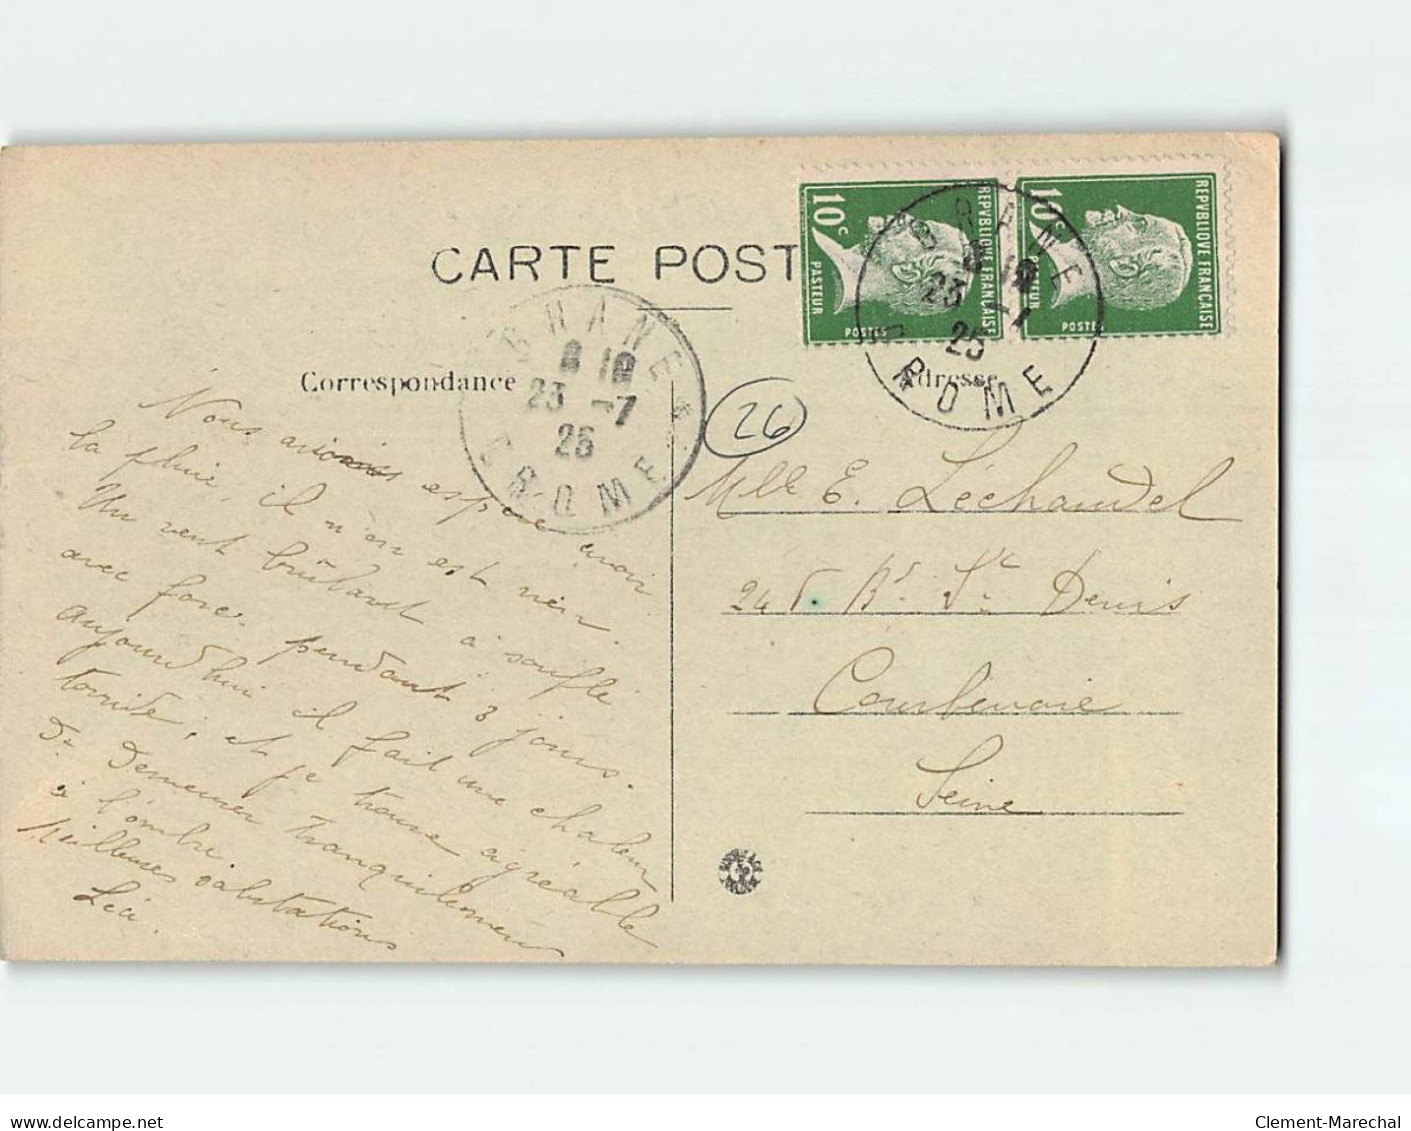 CARTE POST
Correspondance
Adresse
REPVBLIQVE FRANÇAISE
10c
PASTEUR
POSTES
REPVBLIQVE FRANÇAISE
10c
POSTES
CRANE
8 10
23 -7
25
DROME
CRANE
23 -7
25
DROME
26
Nous avions espéré avoir
la pluie, il n'en est rien.
Un vent brûlant a soufflé
avec force pendant 3 jours.
aujourd'hui il fait une chaleur
torride, et je trouve agréable
de demeurer tranquillement
à l'ombre.
Meilleures salutations
Mlle E. Léchaudel
Bd St Denis
Courbevoie
Seine
Clement-Marechal